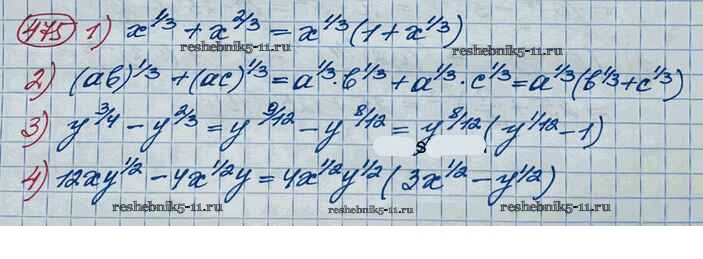 475 1) x^{1/3} + x^{2/3} = x^{1/3}(1 + x^{1/3})
reshebnik5-11.ru reshebnik5-11.ru
2) (ab)^{1/3} + (ac)^{1/3} = a^{1/3}·b^{1/3} + a^{1/3}·c^{1/3} = a^{1/3}(b^{1/3} + c^{1/3})
3) y^{3/4} - y^{2/3} = y^{9/12} - y^{8/12} = y^{8/12}(y^{1/12} - 1)
4) 12xy^{1/2} - 4x^{1/2}y = 4x^{1/2}y^{1/2}(3x^{1/2} - y^{1/2})
reshebnik5-11.ru reshebnik5-11.ru reshebnik5-11.ru